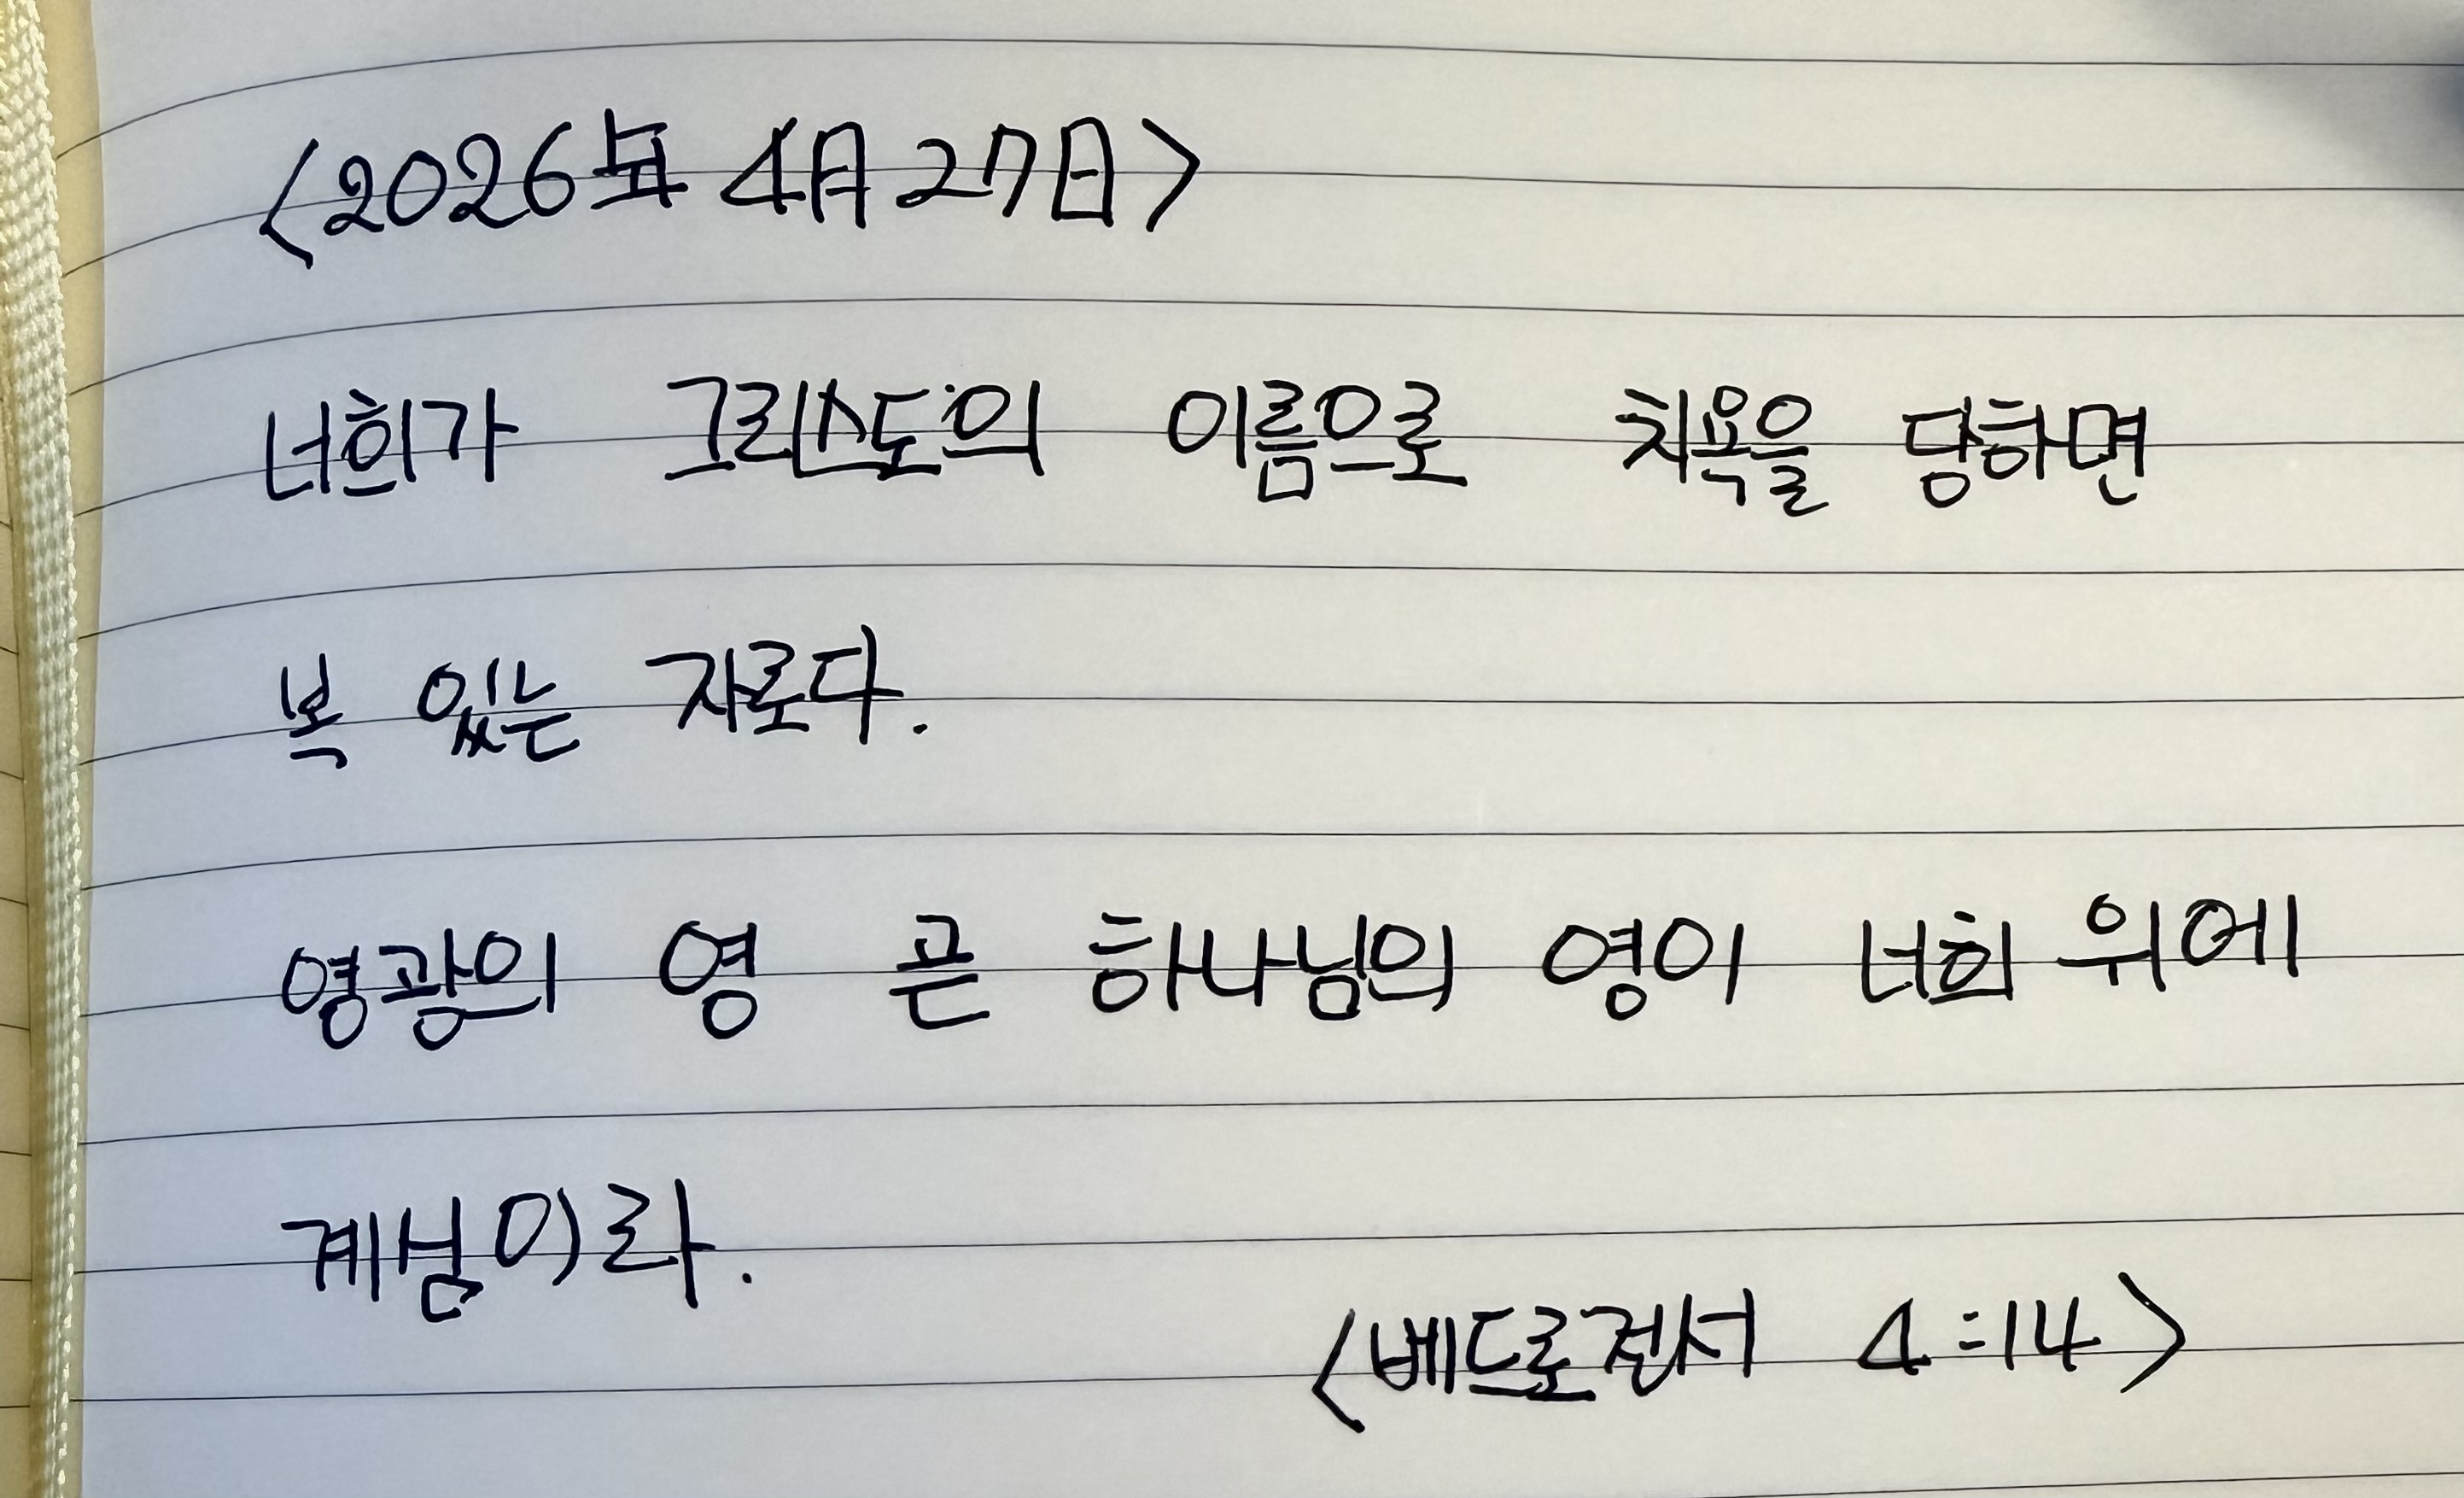 <2026年 4月 27日>
너희가 그리스도의 이름으로 치욕을 당하면
복 있는 자로다.
영광의 영 곧 하나님의 영이 너희 위에
계심이라.
<베드로전서 4:14>